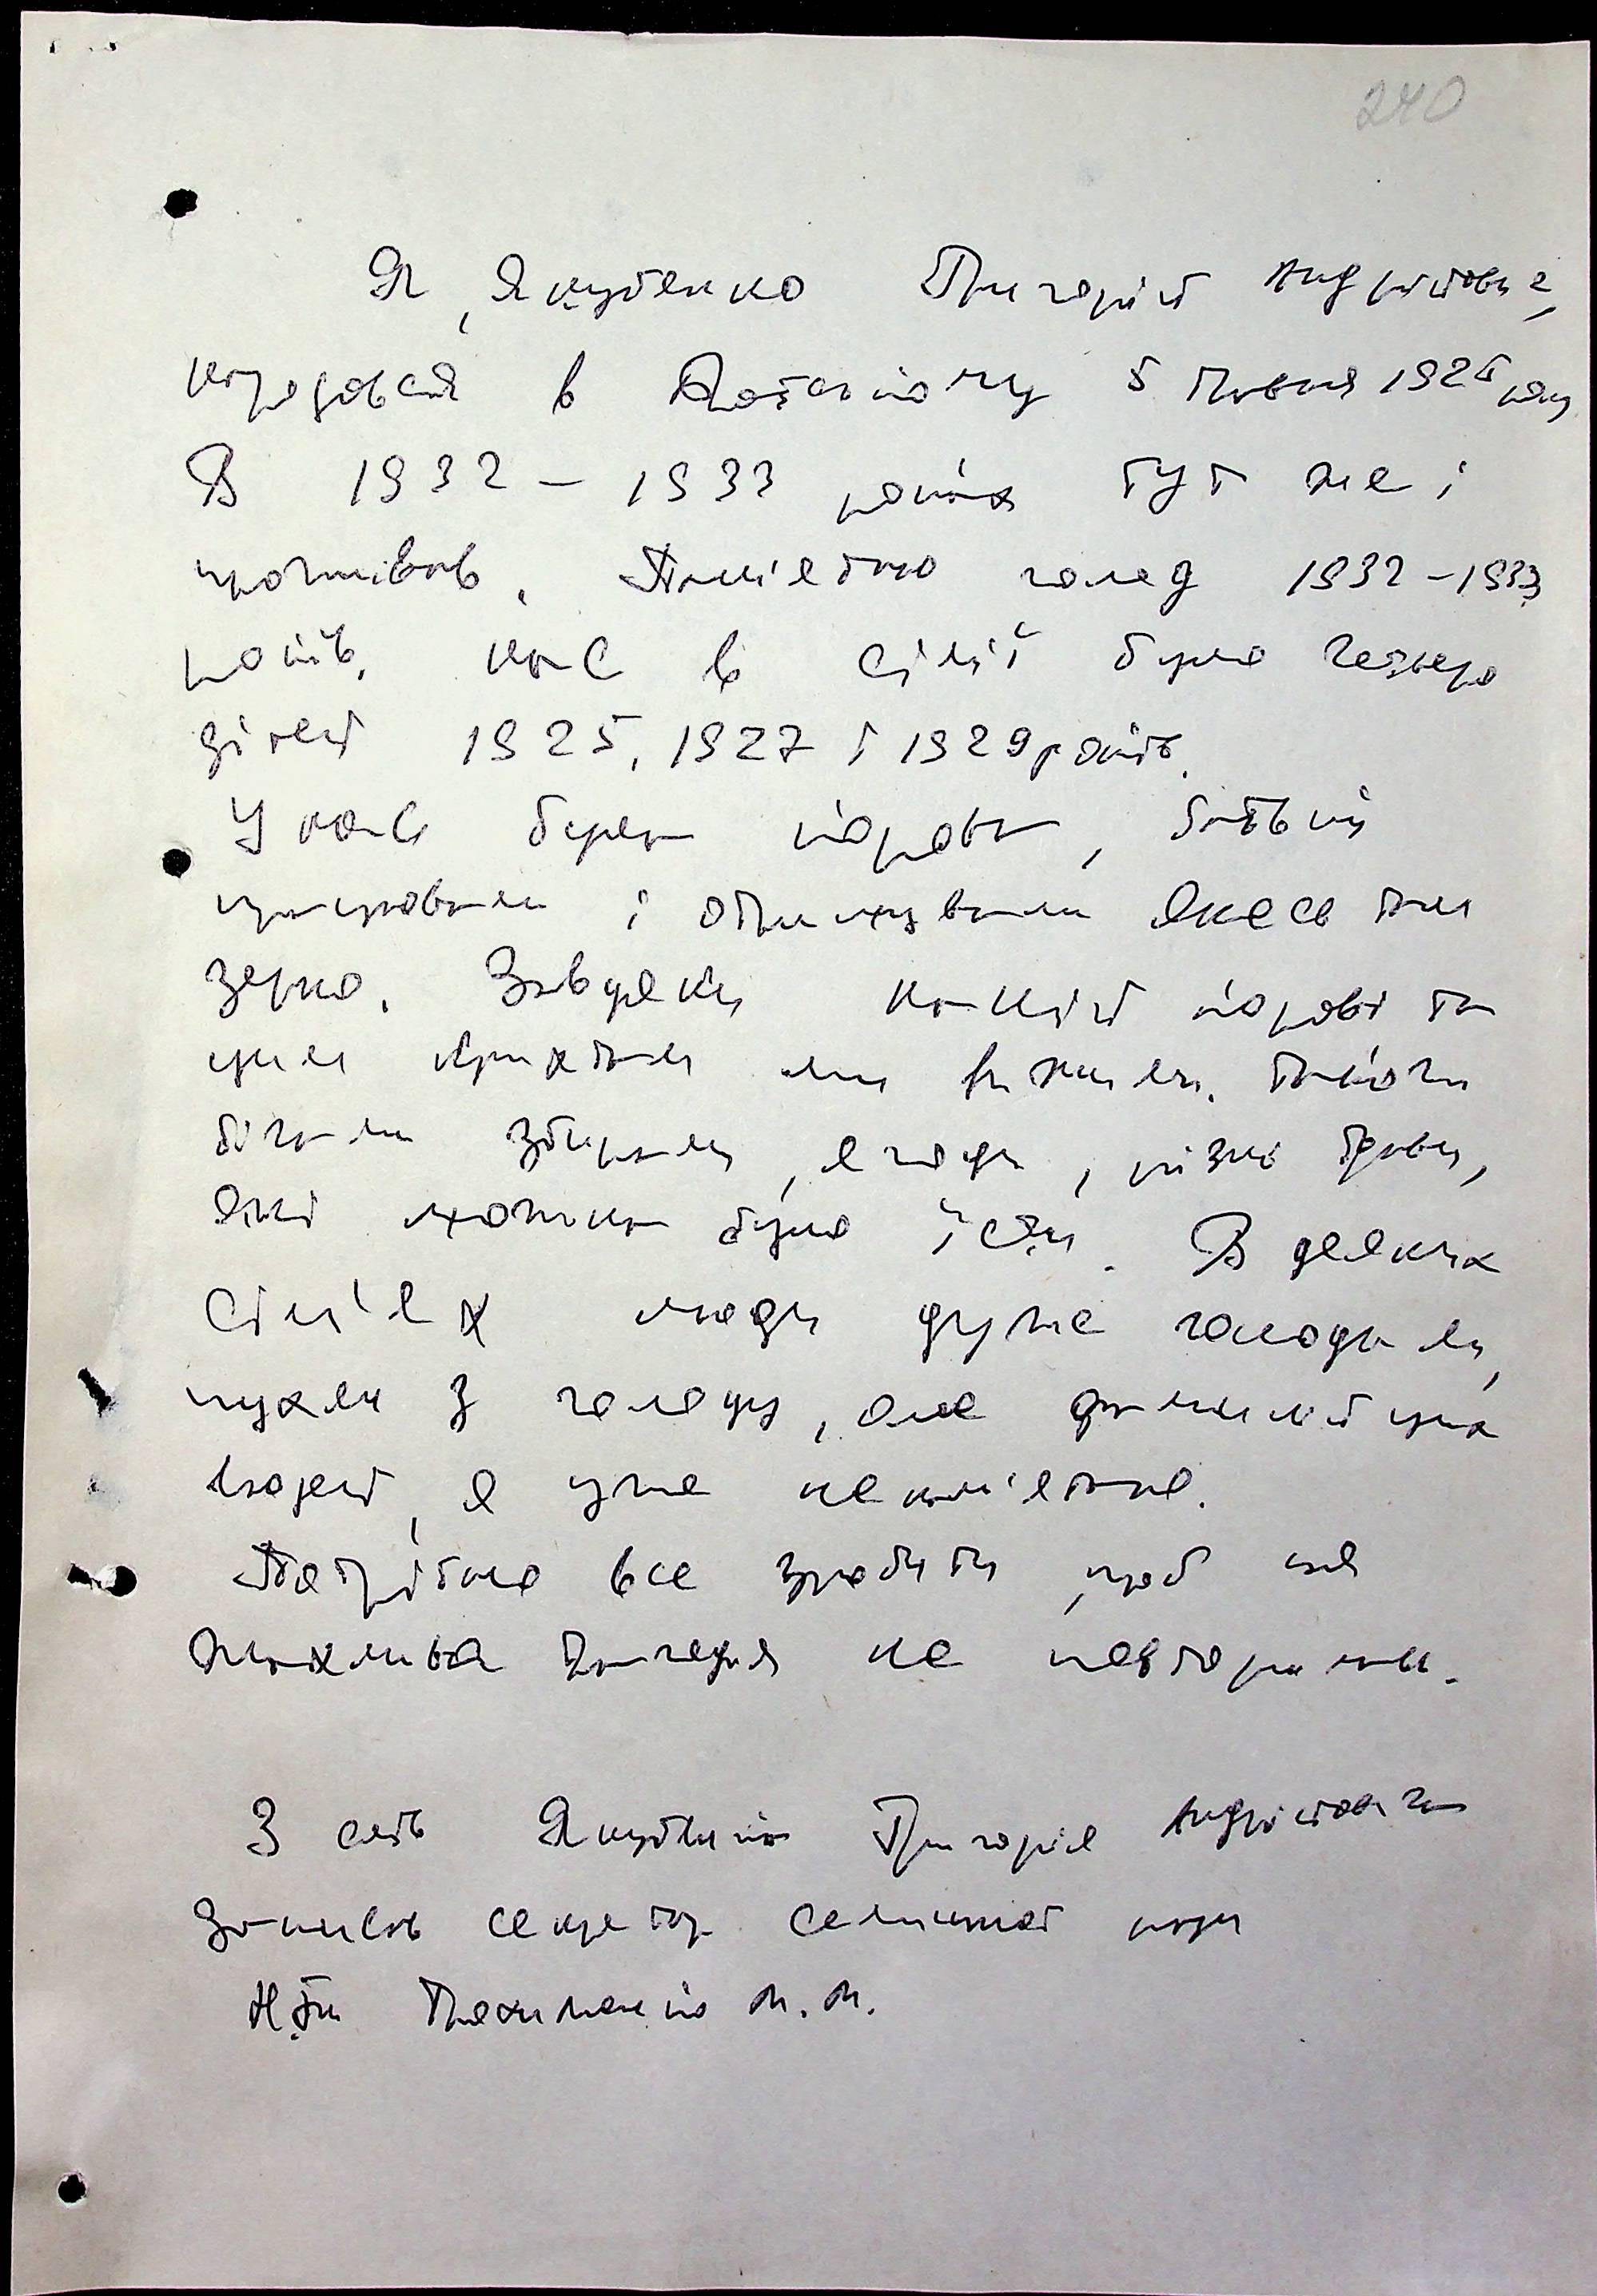 240
Я, Якубенко Григорій Андрійович,
народився в 5 травня 1925 року
В 1932 – 1933 роках тут же і
проживав. Пам'ятаю голод 1932 – 1933
років. нас в сім'ї було четверо
дітей 1925, 1927 і 1929 років.
У нас була корова, батьки
працювали і отримували якесь там
зерно. Завдяки нашій корові та
цим крихтам ми вижили. Також
бігали збирали, ягоди, різні трави,
які можна було їсти. В деяких
сім'ях люди дуже голодали,
пухли з голоду, але фамилій цих
людей, я уже не пам'ятаю.
Потрібно все зробити, щоб ця
жахлива трагедія не повторилась.
З слів Якубенка Григорія Андрійовича
записав секретар селищної ради
М. М.